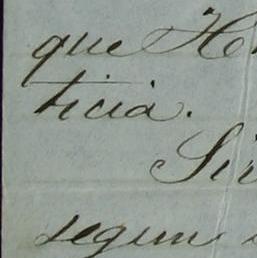 que H
ticia.
Sir
segun